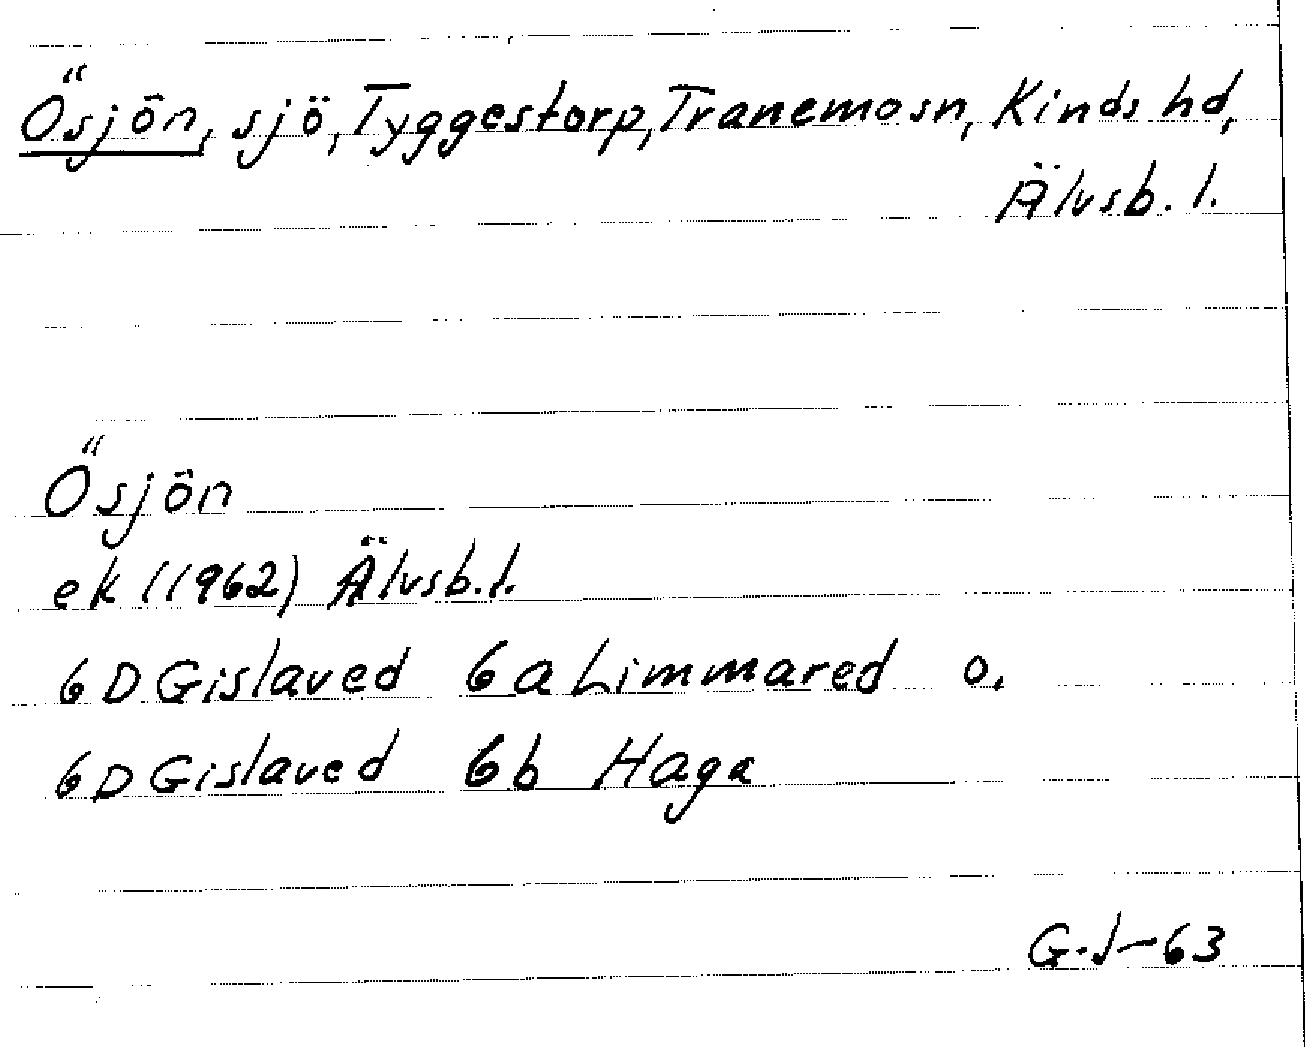 Ösjön, sjö, Tyggestorp, Tranemosn, Kinds hd,
Älvsb. l.
Ösjön
ek (1962) Älvsb. l.
6D Gislaved 6a Limmared o.
6D Gislaved 6b Haga
G.J-63